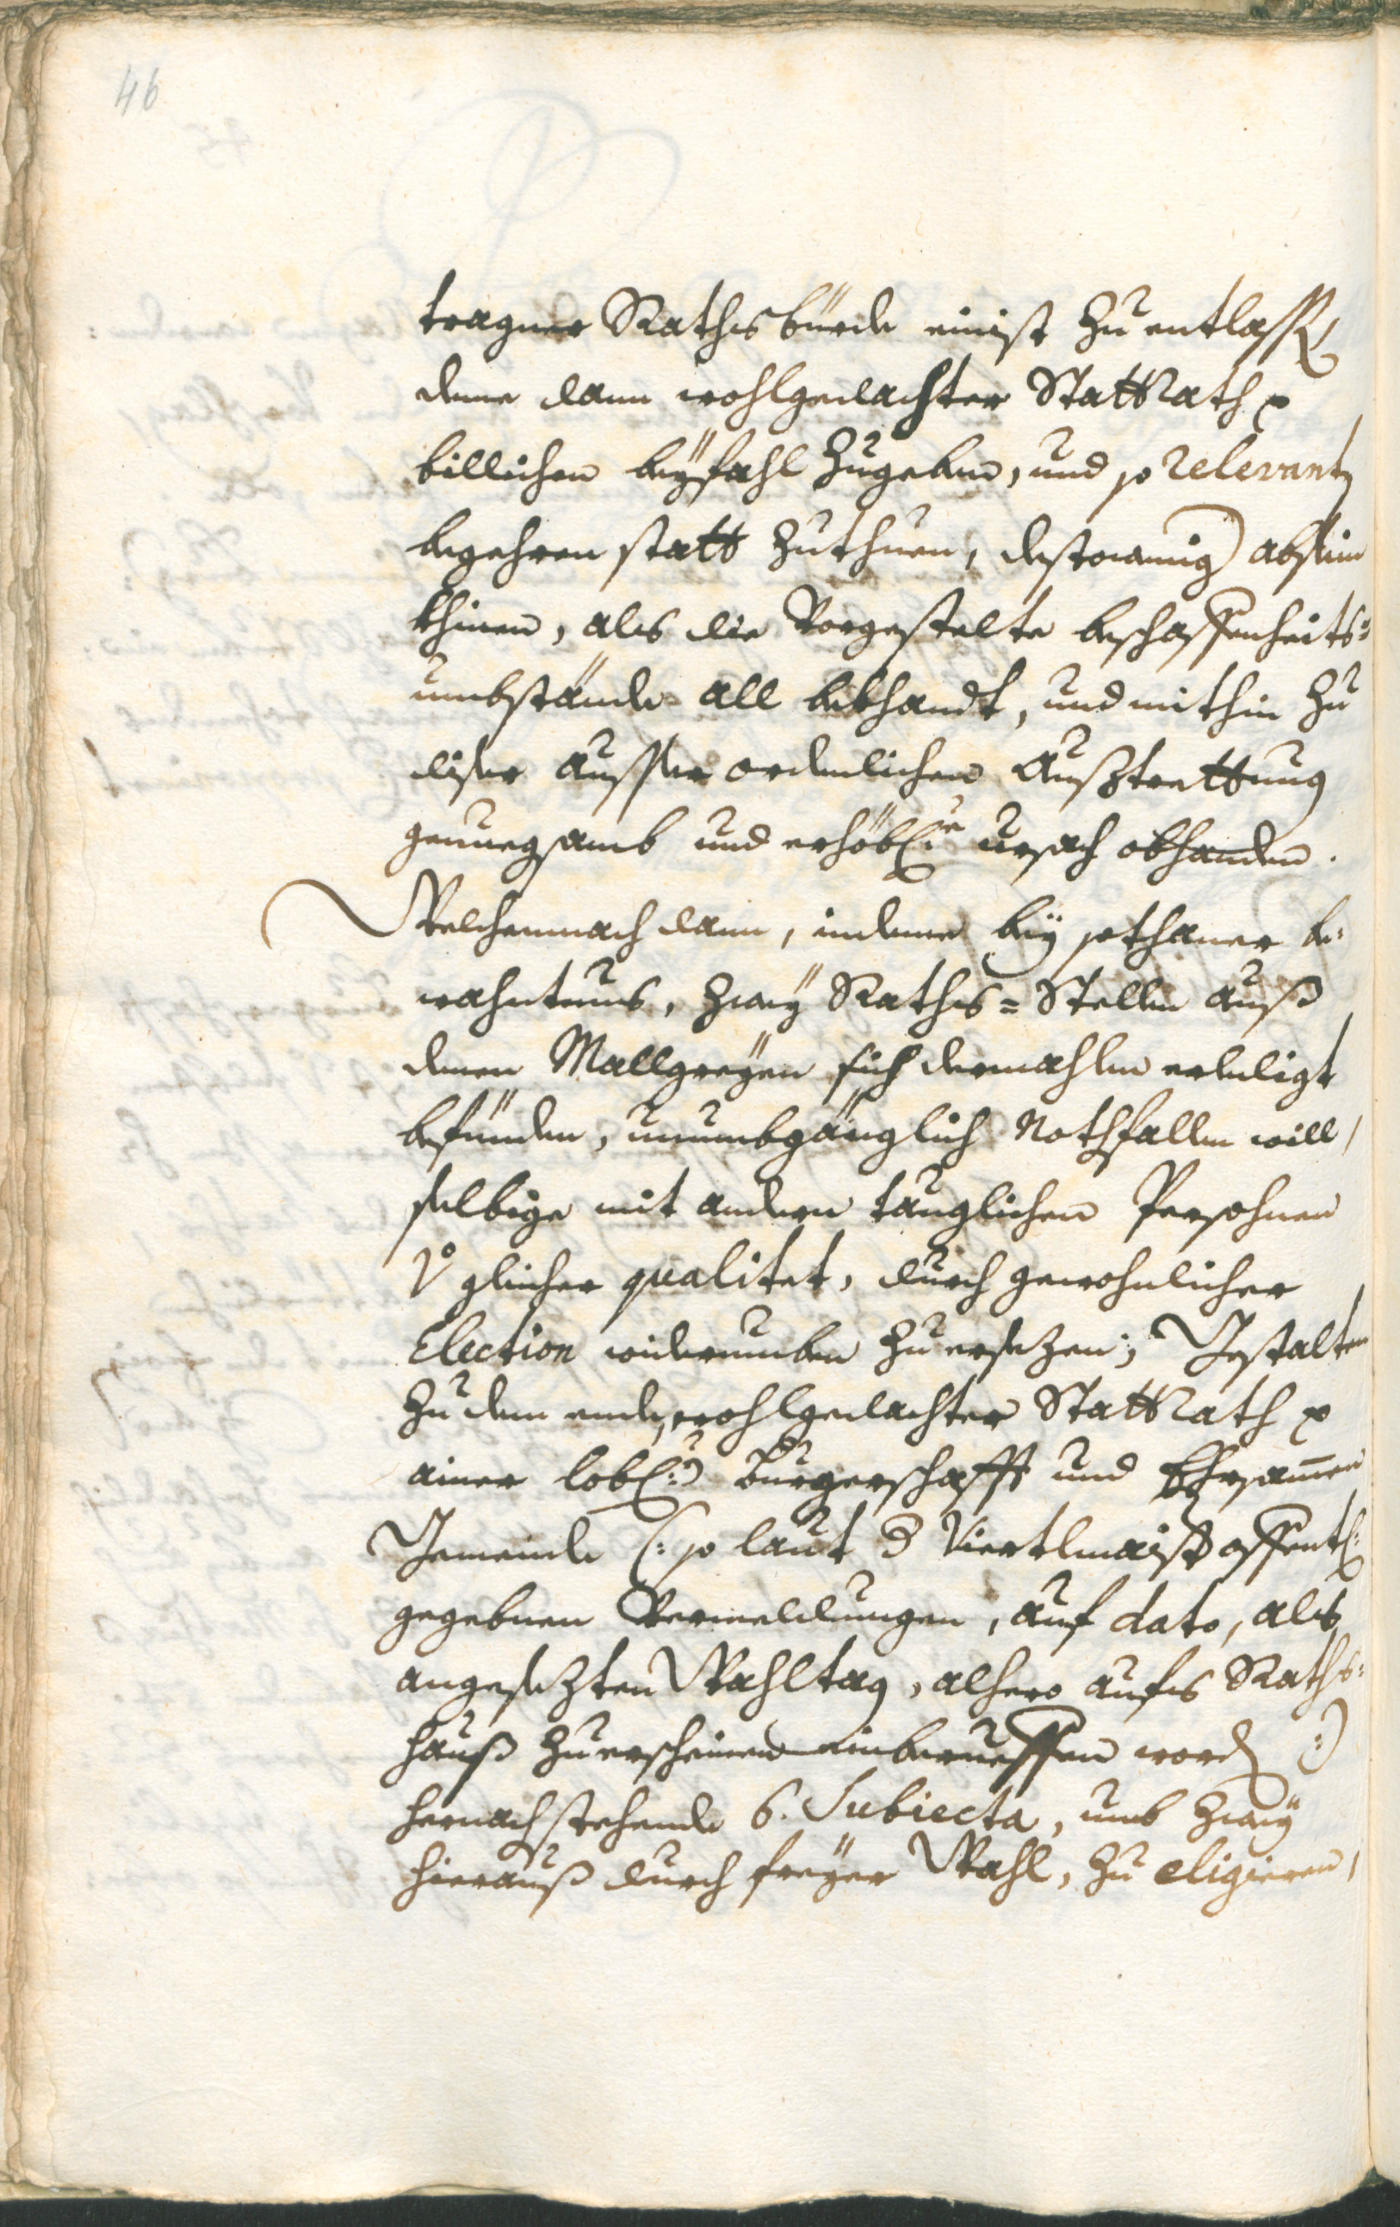 46
tragner Raths bürde einist zu entlassen,
deme dann wohlgedachter StattRath
billichen beÿfahl zugeben, und so relevantz
begehren statt zuthuen, destowenig absein
khinen, als die Vorgestelte beschaffenheits=
umbstände all bekhandt, und mithin zu
diser ausser ordenlichen Außtrettung
genuegsamb und erhöbl: ursach obhanden.
Welchemnach dann, indeme beÿ sothaner be=
wahntnus, zweÿ Raths=Stellen auß
denen Mallgreÿen sich dermahlen erledigt
befünden, unumbgänglich Nothfallen will,
selbige mit andern tauglichen Persohnen
gleicher qualitet, durch gewohnlicher
Election widerumben zu ersezen; Gestalten
zu dem ende, wohlgedachter StattRath
ainer lobl: Burgerschafft und Ehrsamen
Gemeinde (: so laut d Viertlmaister offentl:
gegebnen Vermeldungen, auf dato, als
angesezten Wahltag, alhero aufs Raths=
hauß zu erscheinen einberueffen word :)
hernach stehende 6. Subiecta, umb zweÿ
hierauß durch freÿer Wahl, zu eligieren,